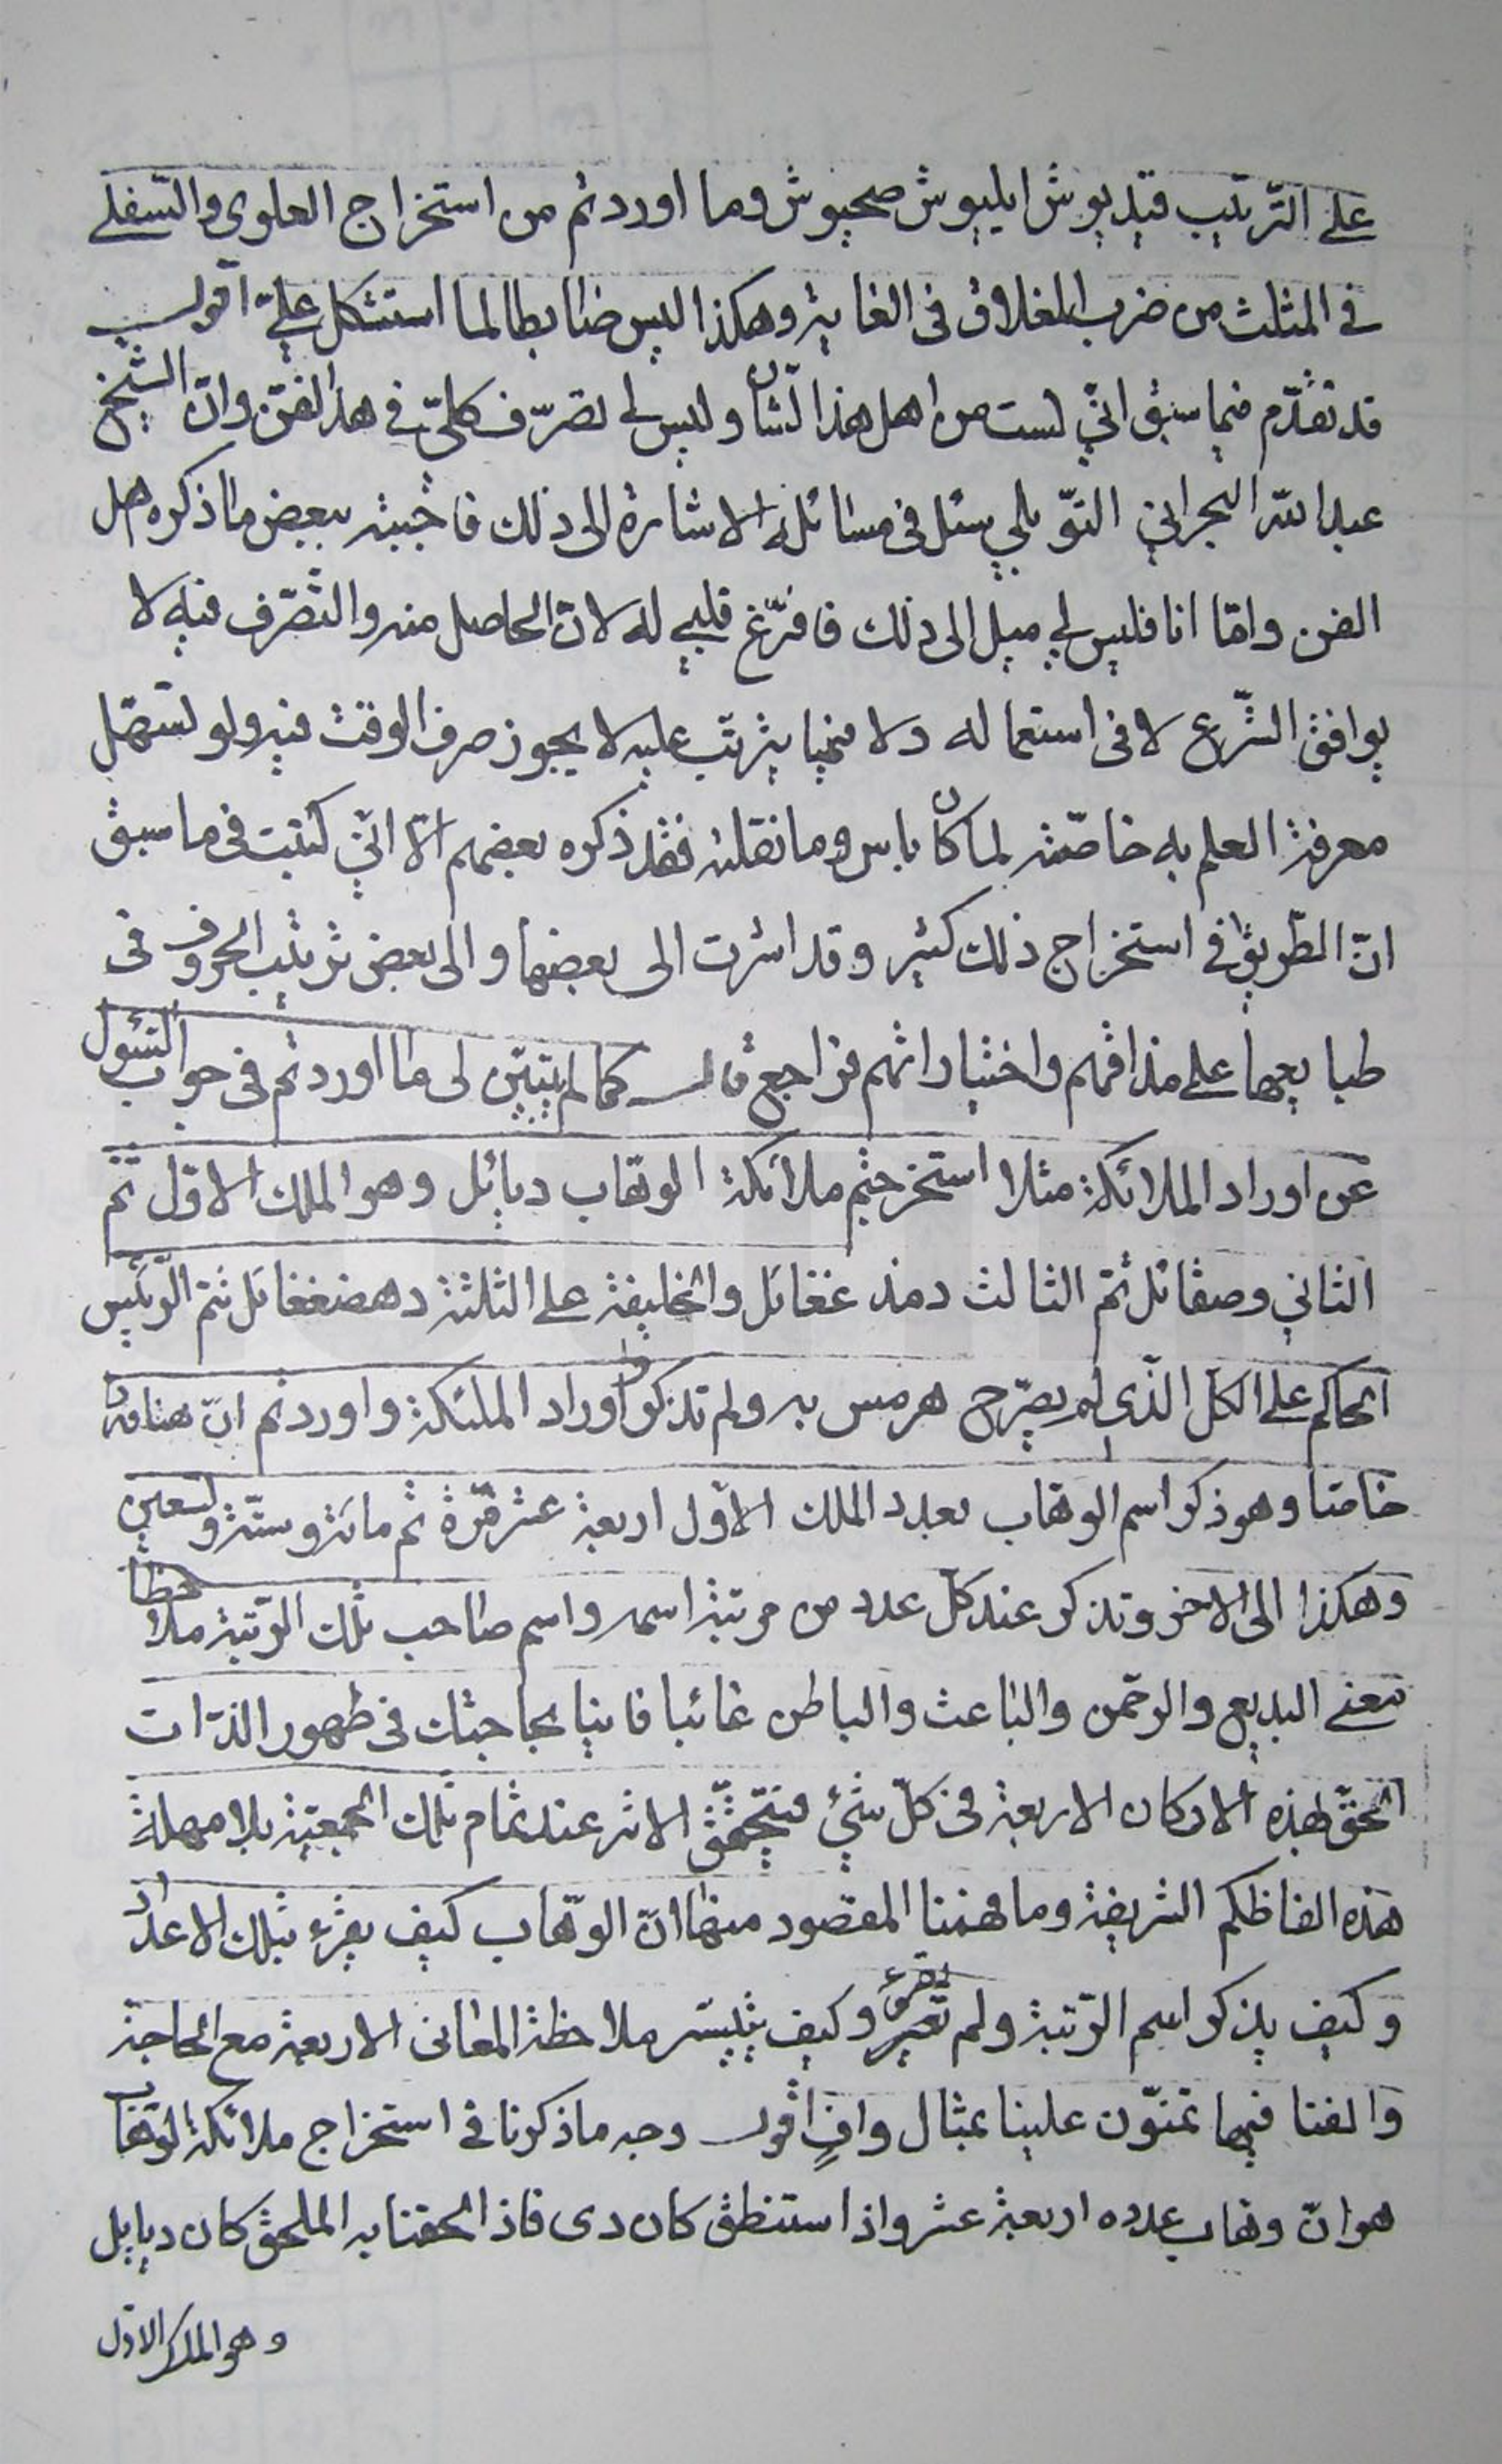 على الترتيب قيديوش ايليوش صحيوش وما اوردتم من استخراج العلوى والسفلى
فى المثلث من ضرب المغلاق فى الغاية وهكذا ليس ضابطا لما استشكل علىّ اقول
قد تقدّم فيما سبق انّى لست من اهل هذا الشأن وليس لى تصرّف كلىّ فى هذا الفنّ وانّ الشيخ
عبد الله البحرانى التوّبلى سئل فى مسائله الاشارة الى ذلك فاجبته ببعض ما ذكره اهل
الفن وامّا انا فليس لى ميل الى ذلك فافرّغ قلبى له لانّ الحاصل منه والتصرّف فيه لا
يوافق الشّرع لا فى استعماله ولا فيما يترتّب عليه لا يجوز صرف الوقت فيه ولو تسهّل
معرفة العلم به خاصّة لما كان باس وما نقلته فقد ذكره بعضهم الّا انّى كتبت فى ما سبق
انّ الطّريق فى استخراج ذلك كثير وقد اشرت الى بعضها والى بعض ترتيب الحروف فى
طبايعها على مذاقهم واختياراتهم فراجع قال كما لم يتبيّن لى ما اوردتم فى جواب السّئول
عن اوراد الملائكة مثلا استخرجتم ملائكة الوهّاب ديائل وهو الملك الاوّل ثمّ
الثانى وصقائل ثمّ الثالث دمذ غغائل والخليفة على الثلثة دهضغغائل ثمّ الرّئيس
الحاكم على الكلّ الّذى لم يصرّح هرمس به ولم تذكروا اوراد الملئكة واوردتم انّ هنا وردا
خاصّا وهو ذكر اسم الوهّاب بعدد الملك الاوّل اربعة عشر مرّة ثم مائة وستّة وتسعين
وهكذا الى الاخر وتذكر عند كلّ عدد من مرتبة اسمه واسم صاحب تلك الرّتبة ملاحظا
معنى البديع والرحمن والباعث والباطن غائبا فانيا بحاجتك فى ظهور الذرّات
الحقّ لهذه الاركان الاربعة فى كلّ شئ فيتحقّق الاثر عند تمام تلك الجمعيّة بلا مهلة
هذه الفاظكم الشريفة وما فهمنا المقصود منها انّ الوهّاب كيف يقرء بتلك الاعداد
وكيف يذكر اسم الرّتبة ولم يقرء وكيف يتيسّر ملاحظة المعانى الاربعة مع الحاجة
والفنا فيها تمنّون علينا بمثال وافٍ اقول وجه ما ذكرنا فى استخراج ملائكة الوهّاب
هو انّ وهاب عدده اربعة عشر واذا استنطق كان دى فاذا الحقنا به الملحق كان ديايل
وهو الملك الاوّل